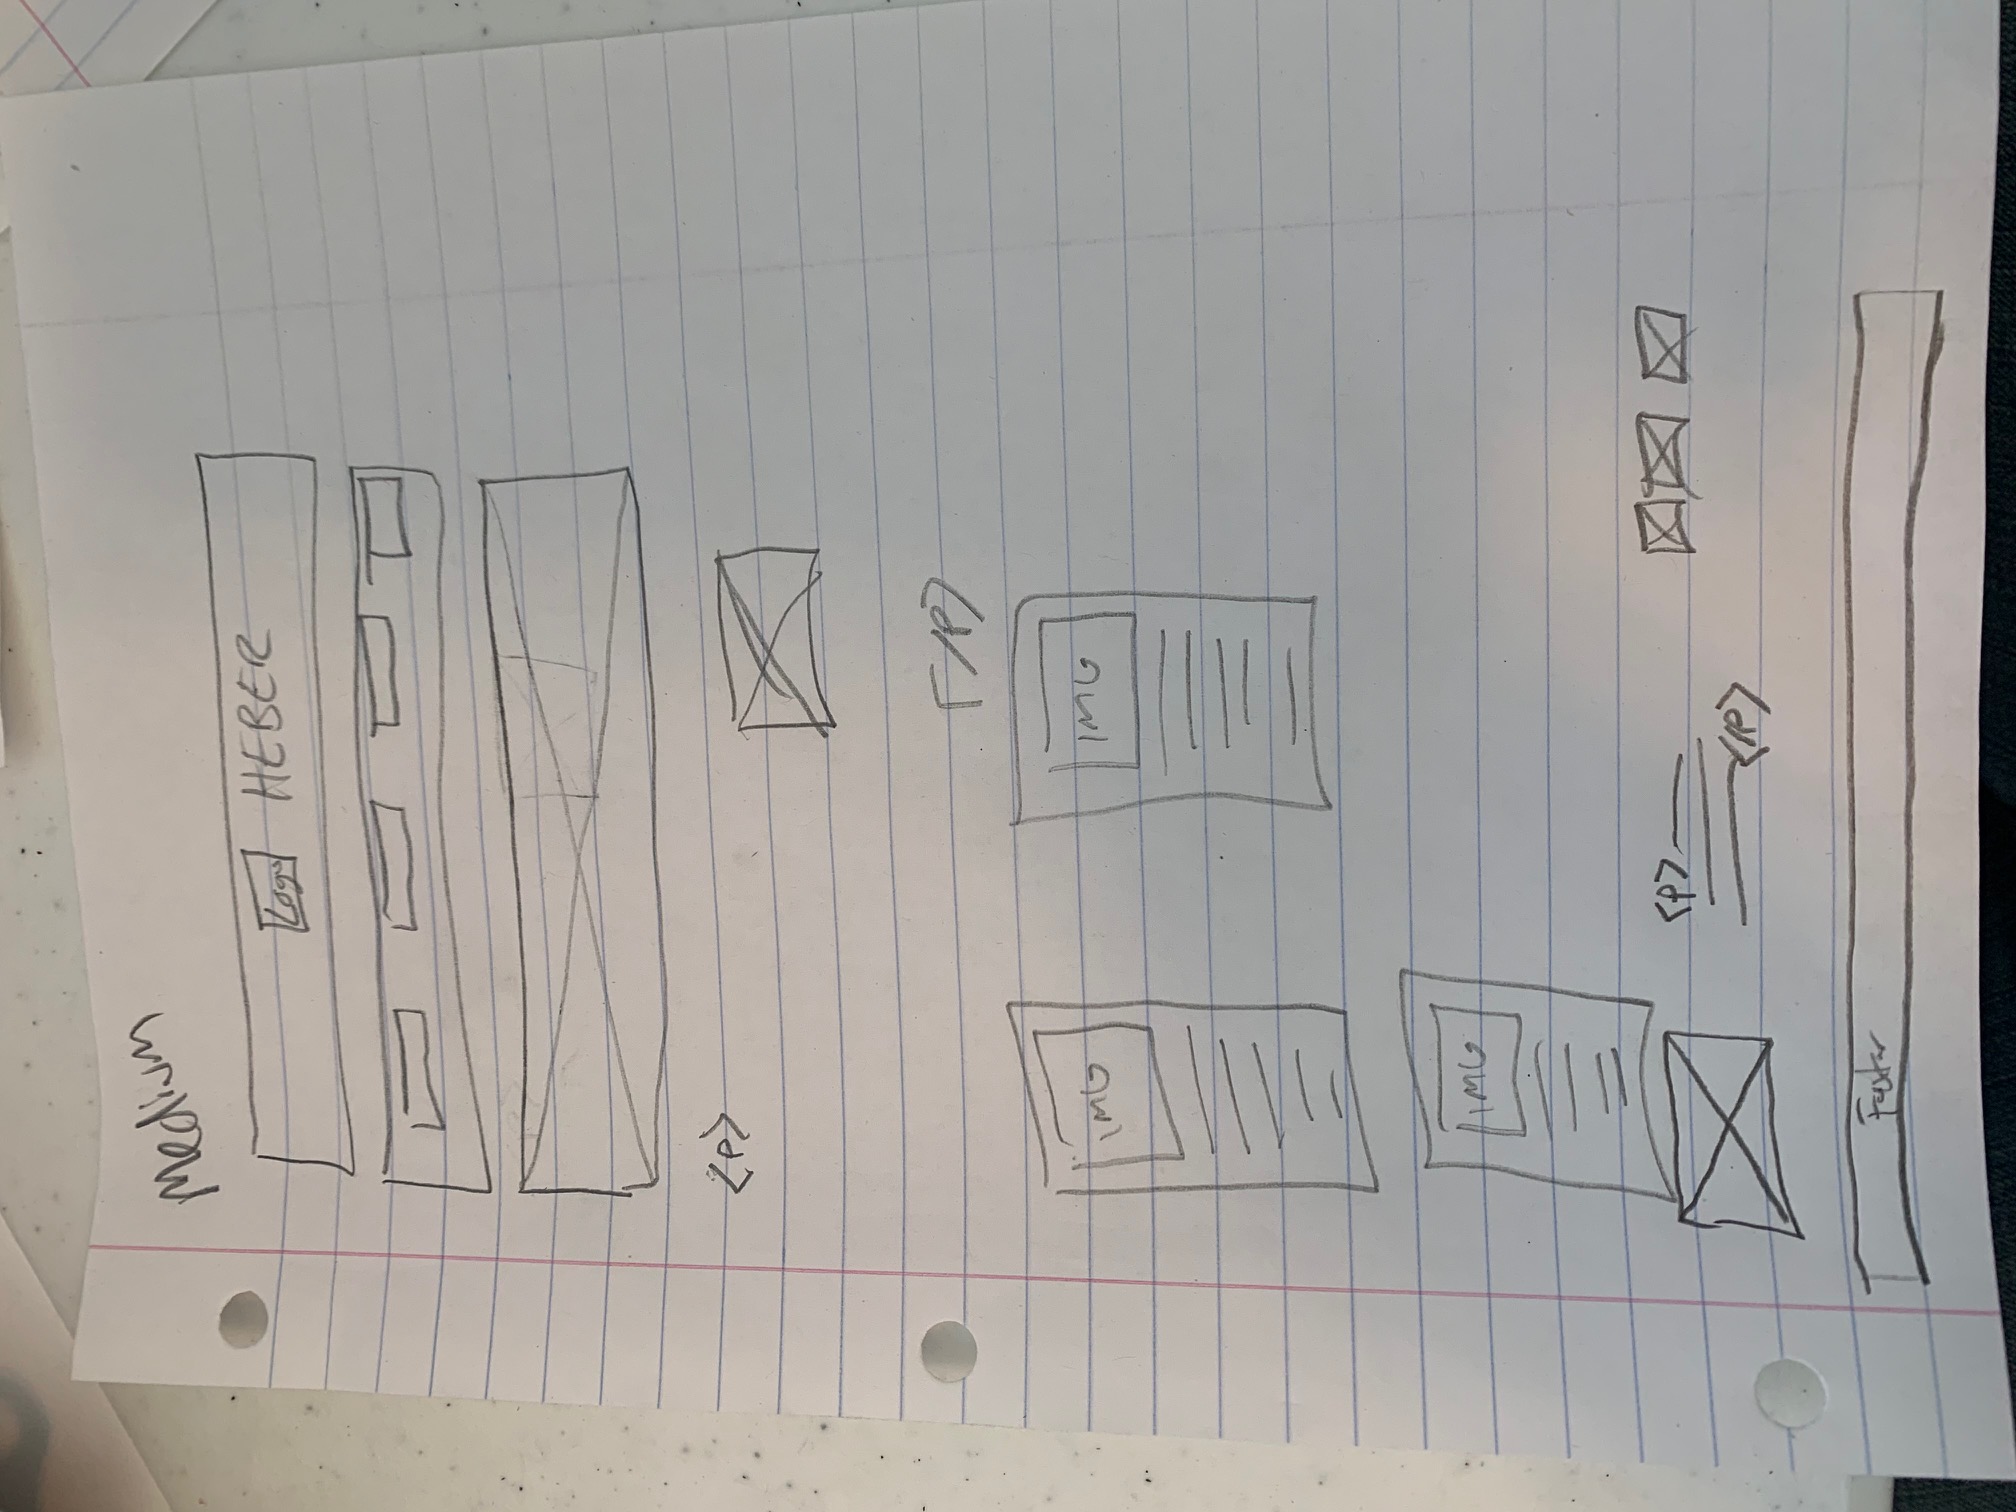 Medium
Logo HEBER
<p>
</p>
IMG IMG
IMG
<p>
</p>
Footer